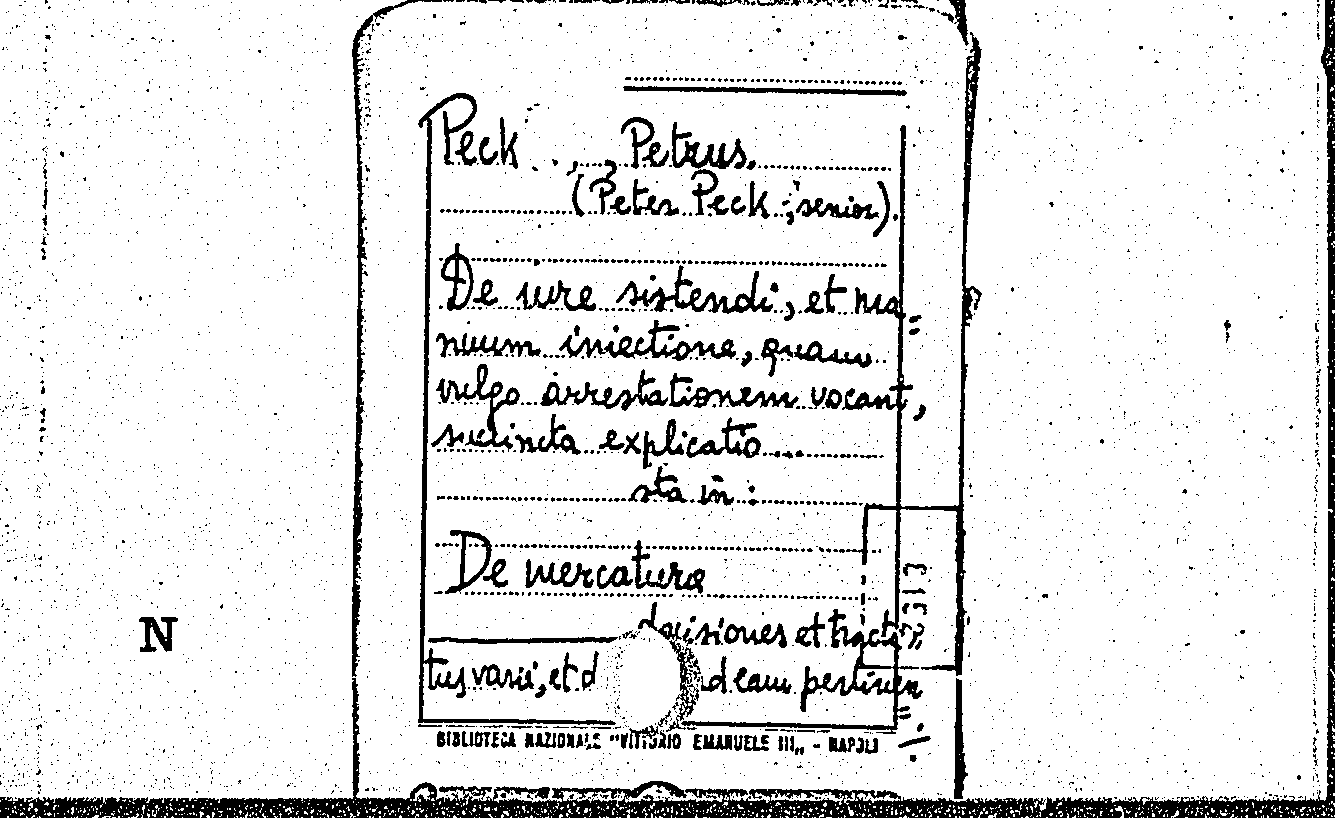 Peck , Petrus.
(Peter Peck, senior).
De iure sistendi, et ma=
nuum iniectione, quam
vulgo arrestationem vocant,
succincta explicatio...
sta in:
De mercatura
decisiones et tracta
tus varii, et d d eam pertinen=
N
BIBLIOTECA NAZIONALE "VITTORIO EMANUELE III„ - NAPOLI